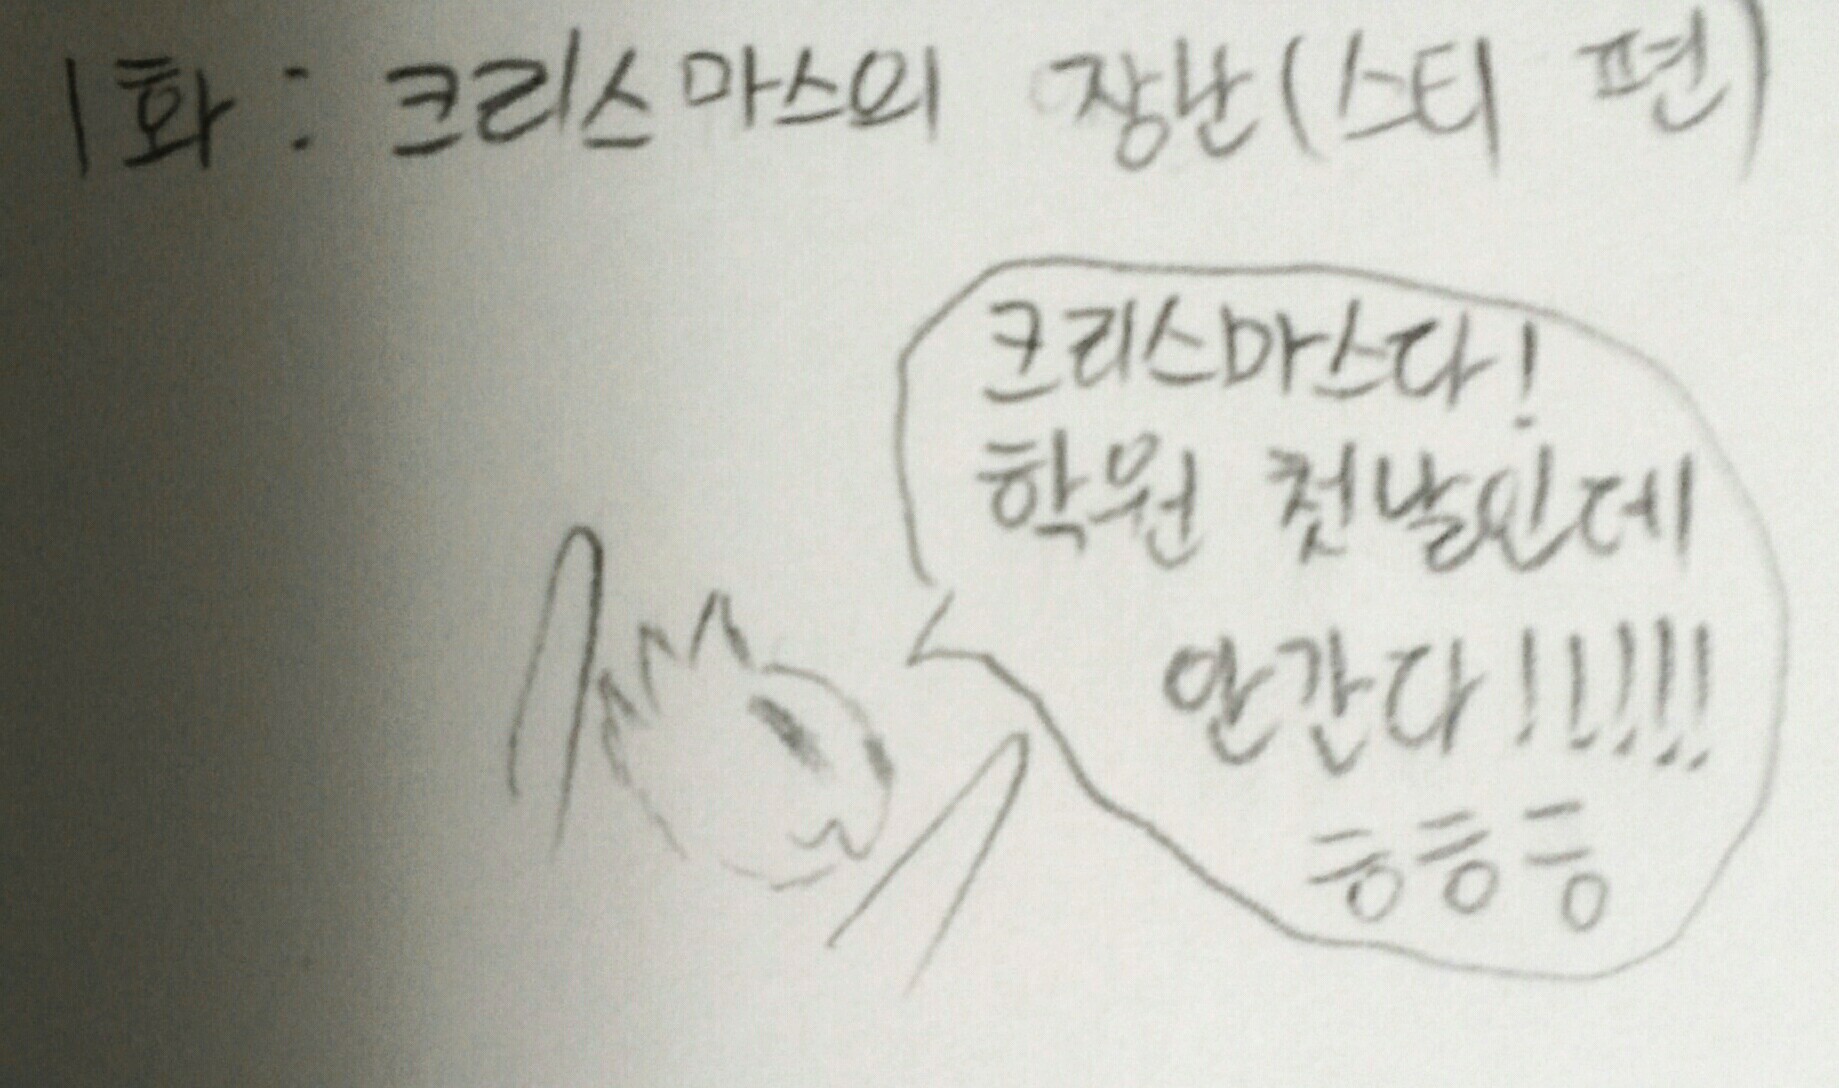 1화: 크리스마스의 장난(스티 편)
크리스마스다!
학원 첫날인데
안간다!!!!!
ㅎㅎㅎ